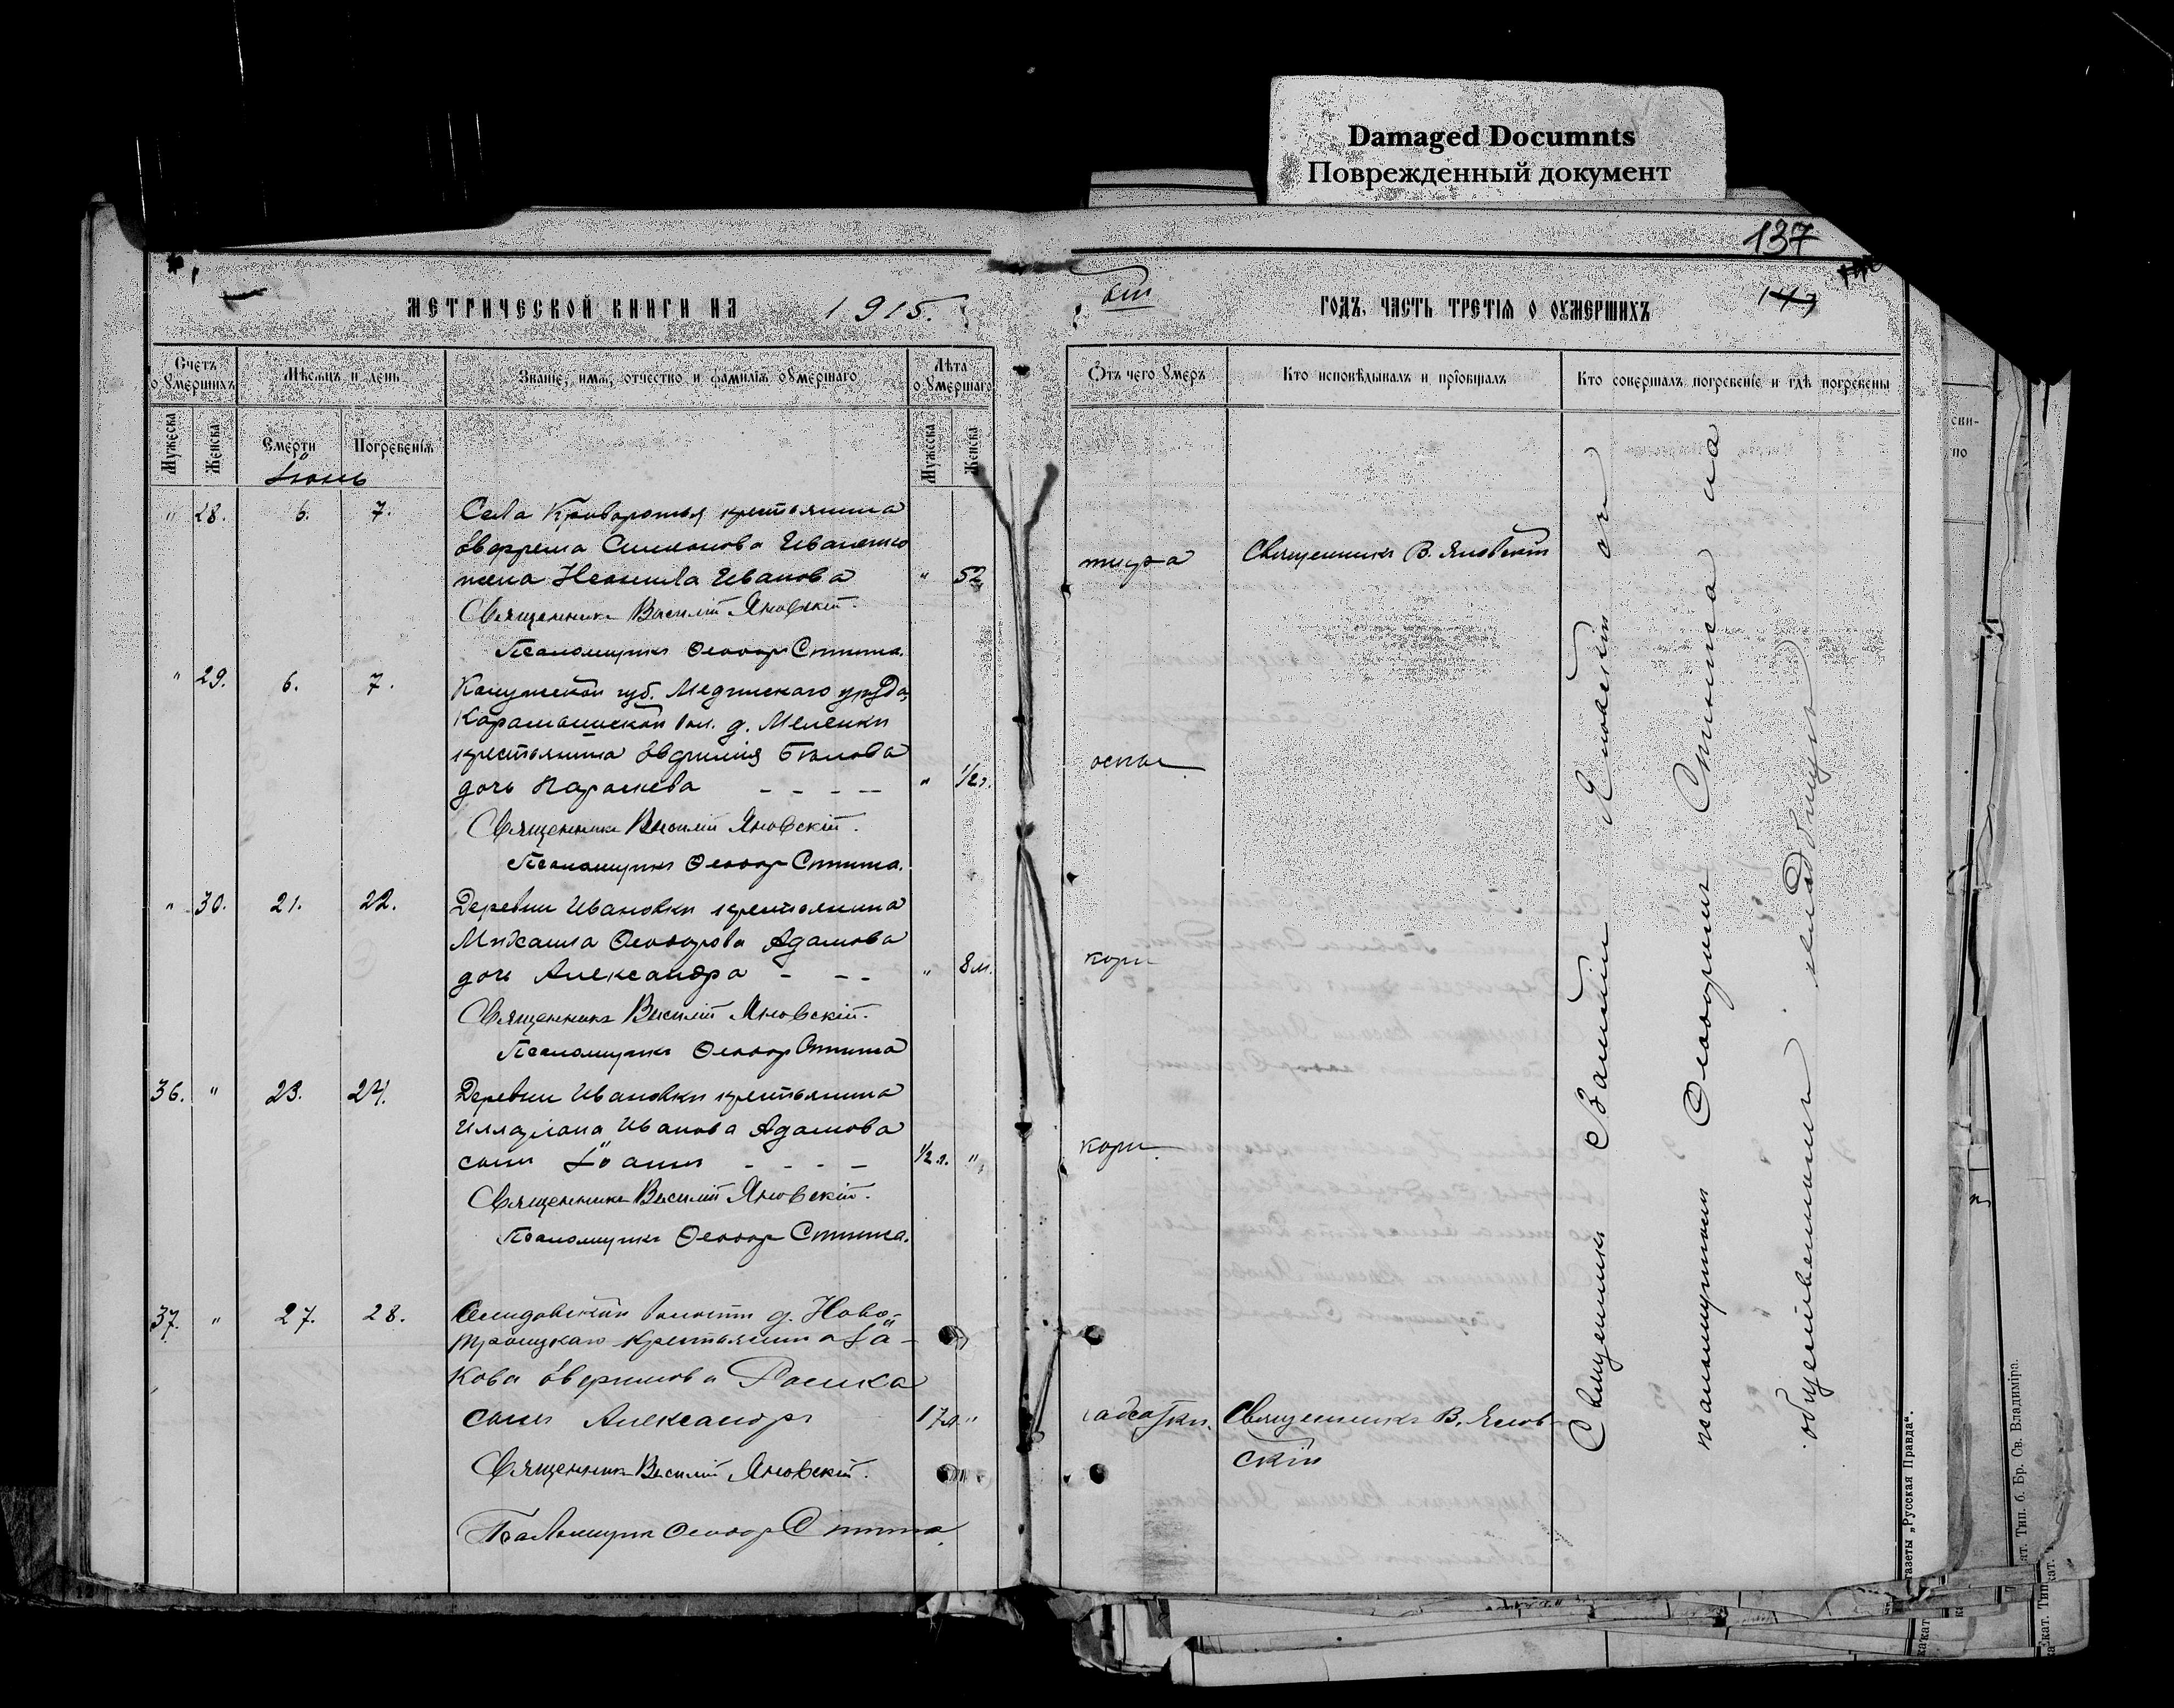 Damaged Documnts
Поврежденный документ
137
МЕТРИЧЕСКОЙ КНИГИ НА 1915.
ый
ГОДЪ, ЧАСТЬ ТРЕТІЯ О ОУМЕРШИХЪ
Счетъ оумершихъ
Мѣсяцъ и день
Званіе, имя, отчество и фамилія оумершаго
Лѣта оумершаго
Отъ чего умеръ
Кто исповѣдывалъ и пріобщалъ
Кто совершалъ погребеніе и гдѣ погребены
Мужеска
Женска
Смерти
Погребенія
Мужеска
Женска
Іюнь
" 28. 6. 7. Села Криворожья крестьянина
Евфрема Симонова Иваненко
жена Неонила Иванова " 52
тифа Священникъ В. Яновскій
Священникъ Василій Яновскій.
Псаломщикъ Ѳеодоръ Стишка.
" 29. 6. 7. Калужской губ. Медынскаго уѣзда,
вол. д. Меленки
крестьянина Евфимія Бѣлова
дочь Параскева - - - - " 1/2 г.
оспы
Священникъ Василій Яновскій.
Псаломщикъ Ѳеодоръ
" 30. 21. 22. Деревни Ивановки крестьянина
Михаила Ѳеодорова Адамова
дочь Александра - - - " 8 м.
кори
Священникъ Василій Яновскій.
Псаломщикъ Ѳеодоръ
36. " 23. 24. Деревни Ивановки крестьянина
Иванова Адамова
сынъ Іоаннъ - - - - 1/2 г. "
кори.
Священникъ Василій Яновскій.
Псаломщикъ Ѳеодоръ
37. " 27. 28. волости д. Ново-
троицкаго крестьянина Іа-
кова
сынъ Александръ 17 л. "
чахотки. Священникъ В. Янов-
скій
Священникъ Василій Яновскій.
Псаломщикъ Ѳеодоръ
Священникъ Василій Яновскій съ
псаломщикомъ Ѳеодоромъ на
общественномъ кладбищѣ
газеты „Русская Правда“.
Тип. б. Бр. Св. Владиміра.